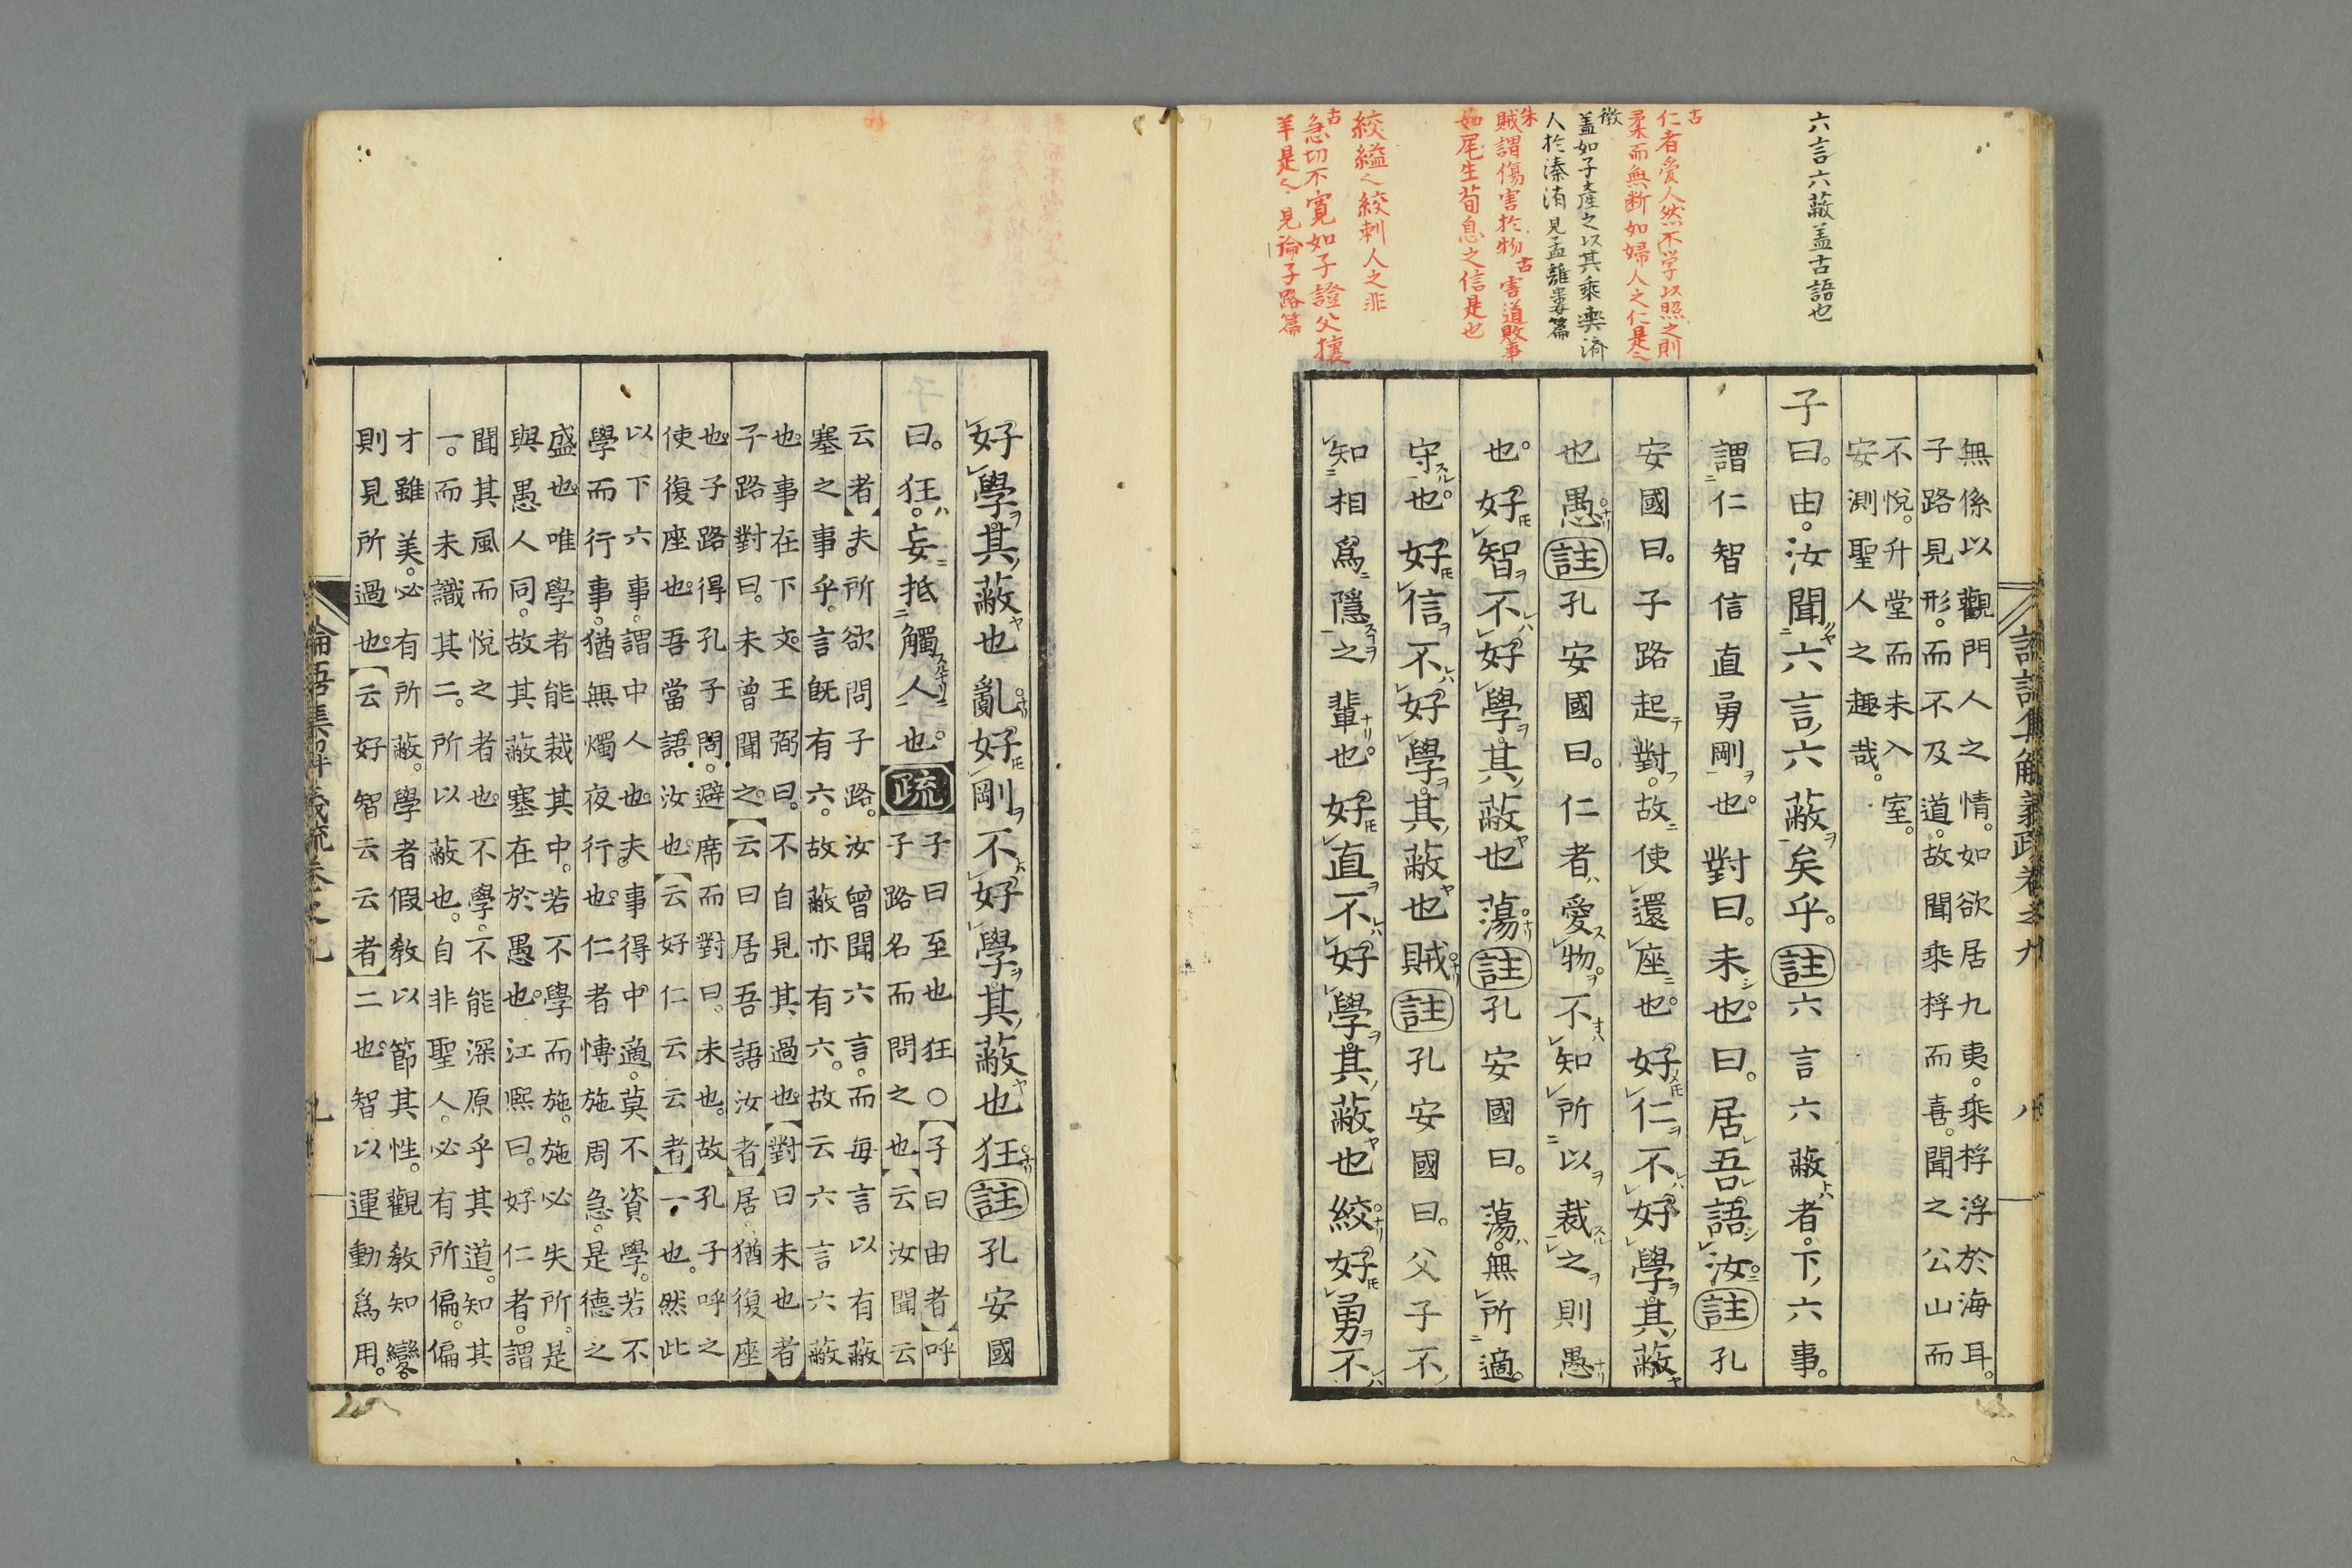 六言六蔽盖古語也
古
仁者愛人然不学以照之則
柔而無断如婦人之仁是也
徴
盖如子產之以其乘輿濟
人於溱洧見孟離婁篇
朱
賊謂傷害於物 古 害道敗事
如尾生荀息之信是也
絞縊也絞刺人之非
古
急切不寛如子證父攘
羊是也見論子路篇
論語集解義疏卷之九 八
無係以觀門人之情。如欲居九夷。乘桴浮於海耳。
子路見形。而不及道。故聞乘桴而喜。聞之公山而
不悅。升堂而未入室。
安測聖人之趣哉。
子曰。由。汝聞六言六蔽矣乎。註六言六蔽者。下六事。
謂仁智信直勇剛也。對曰。未也。曰。居吾語汝註孔
安國曰。子路起對。故使還座也。好仁不好學其蔽
也愚註孔安國曰。仁者愛物。不知所以裁之則愚
也。好智不好學其蔽也蕩註孔安國曰。蕩。無所適
守也。好信不好學其蔽也賊註孔安國曰。父子不
知相爲隱之輩也。好直不好學其蔽也絞好勇不
好學其蔽也亂好剛不好學其蔽也狂註孔安國
曰。狂。妄抵觸人也。疏
子曰至也狂〇【子曰由者】呼
子路名而問之也【云汝聞云
云者】夫。所欲問子路。汝曾聞六言。而每言以有蔽
塞之事乎。言既有六。故蔽亦有六。故云六言六蔽
也。事在下文。王弼曰。不自見其過也。【對曰未也者】
子路對曰。未曾聞之。【云曰居吾語汝者】居。猶復座
也。子路得孔子問。避席而對曰。未也。故孔子呼之
使復座也。吾當語汝也。【云好仁云云者】一也。然此
以下六事。謂中人也。夫事得中適。莫不資學。若不
學而行事。猶無燭夜行也。仁者博施周急。是德之
盛也。唯學者能裁其中。若不學而施。施必失所。是
與愚人同。故其蔽塞在於愚也。江熙曰。好仁者。謂
聞其風而悅之者也。不學。不能深原乎其道。知其
一。而未識其二。所以蔽也。自非聖人。必有所偏。偏
才雖美。必有所蔽。學者假教以節其性。觀教知變
則見所過也。【云好智云云者】二也。智以運動爲用。
論語集解義疏卷之九